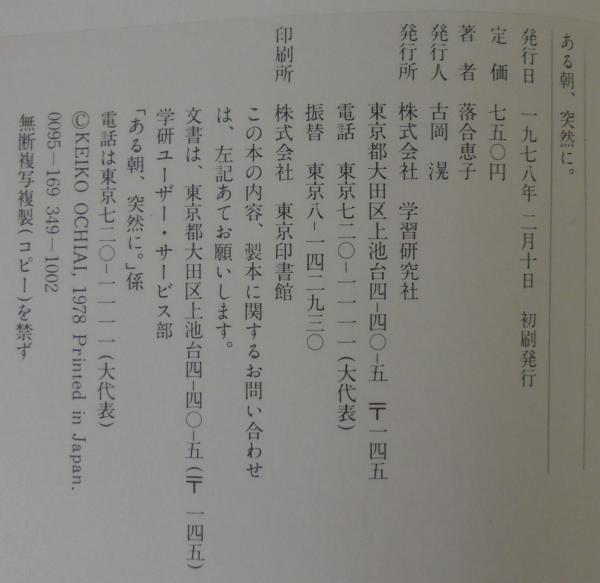 ある朝、突然に。
発行日　一九七八年 二月十日　初刷発行
定　価　七五〇円
著　者　落合恵子
発行人　古岡　滉
発行所　株式会社　学習研究社
東京都大田区上池台四−四〇−五　〒一四五
電話　東京七二〇−一一一一(大代表)
振替　東京八−一四二九三〇
印刷所　株式会社　東京印書館
この本の内容、製本に関するお問い合わせ
は、左記あてお願いします。
文書は、東京都大田区上池台四−四〇−五(〒一四五)
学研ユーザー・サービス部
「ある朝、突然に。」係
電話は東京七二〇−一一一一(大代表)
©KEIKO OCHIAI, 1978 Printed in Japan.
0095−169 349−1002
無断複写複製(コピー)を禁ず